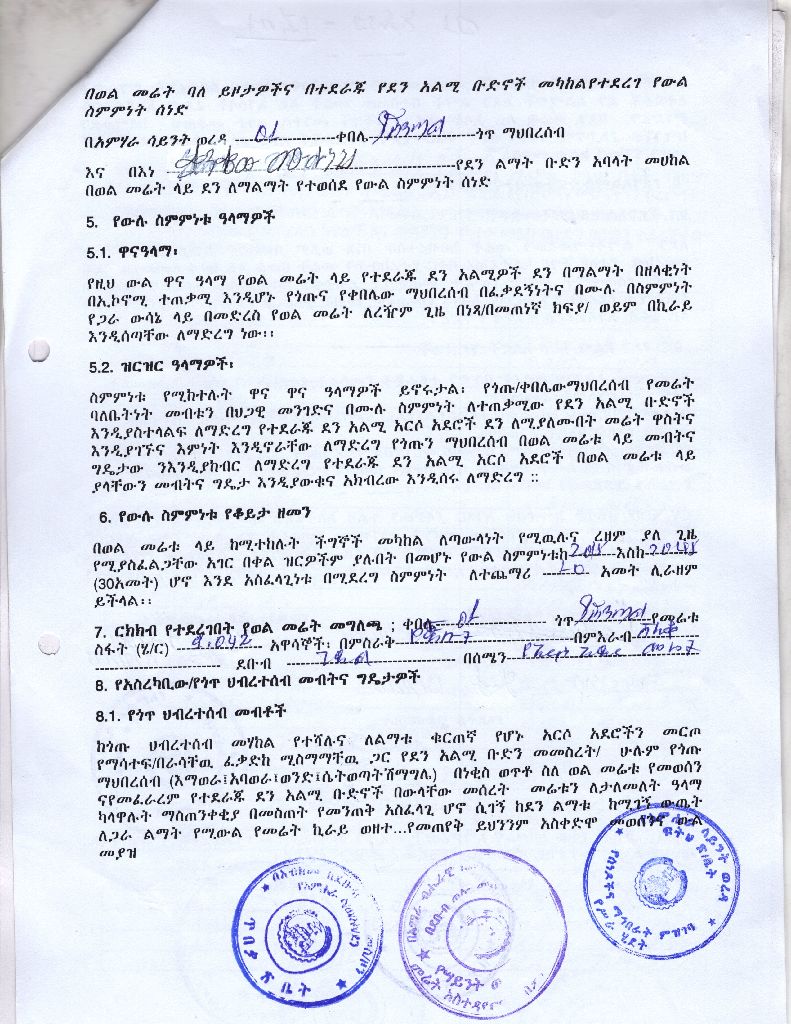 በወል መሬት ባለ ይዞታዎችና በተደራጁ የደን አልሚ ቡድኖች መካከልየተደረገ የውል
ስምምነት ሰነድ
በአምሃራ ሳይንት ወረዳ 01 ቀበሌ ጎጥ ማህበረሰብ
እና በእነ የደን ልማት ቡድን አባላት መሀከል
በወል መሬት ላይ ደን ለማልማት የተወሰደ የውል ስምምነት ሰነድ
5. የውሉ ስምምነቱ ዓላማዎች
5.1. ዋናዓላማ፡
የዚህ ውል ዋና ዓላማ የወል መሬት ላይ የተደራጁ ደን አልሚዎች ደን በማልማት በዘላቂነት
በኢኮኖሚ ተጠቃሚ እንዲሆኑ የጎጡና የቀበሌው ማህበረሰብ በፈቃደኝነትና በሙሉ በስምምነት
የጋራ ውሳኔ ላይ በመድረስ የወል መሬት ለረዥም ጊዜ በነጻ/በመጠነኛ ክፍያ/ ወይም በኪራይ
እንዲሰጣቸው ለማድረግ ነው፡፡
5.2. ዝርዝር ዓላማዎች፡
ስምምነቱ የሚከተሉት ዋና ዋና ዓላማዎች ይኖሩታል፡ የጎጡ/ቀበሌውማህበረሰብ የመሬት
ባለቤትነት መብቱን በህጋዊ መንገድና በሙሉ ስምምነት ለተጠቃሚው የደን አልሚ ቡድኖች
እንዲያስተላልፍ ለማድረግ የተደራጁ ደን አልሚ አርሶ አደሮች ደን ለሚያለሙበት መሬት ዋስትና
እንዲያገኙና እምነት እንዲኖራቸው ለማድረግ የጎጡን ማህበረሰብ በወል መሬቱ ላይ መብትና
ግዴታው ንእንዲያከብር ለማድረግ የተደራጁ ደን አልሚ አርሶ አደሮች በወል መሬቱ ላይ
ያላቸውን መብትና ግዴታ እንዲያውቁና አክብረው እንዲሰሩ ለማድረግ ::
6. የውሉ ስምምነቱ የቆይታ ዘመን
በወል መሬቱ ላይ ከሚተከሉት ችግኞች መካከል ለጣውላነት የሚዉሉና ረዘም ያለ ጊዜ
የሚያስፈልጋቸው አገር በቀል ዝርዎችም ያሉበት በመሆኑ የውል ስምምነቱከ እስከ
(30አመት) ሆኖ እንደ አስፈላጊነቱ በሚደረግ ስምምነት ለተጨማሪ አመት ሊራዘም
ይችላል፡፡
7. ርክክብ የተደረገበት የወል መሬት መግለጫ ; ቀበሌ 01 ጎጥ የመሬቱ
ስፋት (ሄ/ር) 9.042 አዋሳኞች፡ በምስራቅ በምእራብ
ደቡብ በሰሜን
8. የአስረካቢው/የጎጥ ህብረተሰብ መብትና ግዴታዎች
8.1. የጎጥ ህብረተሰብ መብቶች
ከጎጡ ህብረተሰብ መሃከል የተሻሉና ለልማቱ ቁርጠኛ የሆኑ አርሶ አደሮችን መርጦ
የማሳተፍ/በራሳቸዉ ፈቃድከ ሚስማማቸዉ ጋር የደን አልሚ ቡድን መመስረት/ ሁሉም የጎጡ
ማህበረሰብ (እማወራ፤አባወራ፤ወንድ፤ሴትወጣትሽማግሌ) በነቂስ ወጥቶ ስለ ወል መሬቱ የመወሰን
ናየመፈራረም የተደራጁ ደን አልሚ ቡድኖች በውላቸው መሰረት መሬቱን ለታለመለት ዓላማ
ካላዋሉት ማስጠንቀቂያ በመስጠት የመንጠቅ አስፈላጊ ሆኖ ሲገኝ ከደን ልማቱ ከሚገኝ ውጤት
ለጋራ ልማት የሚውል የመሬት ኪራይ ወዘተ...የመጠየቅ ይህንንም አስቀድሞ መወሰንና ውል
መያዝ